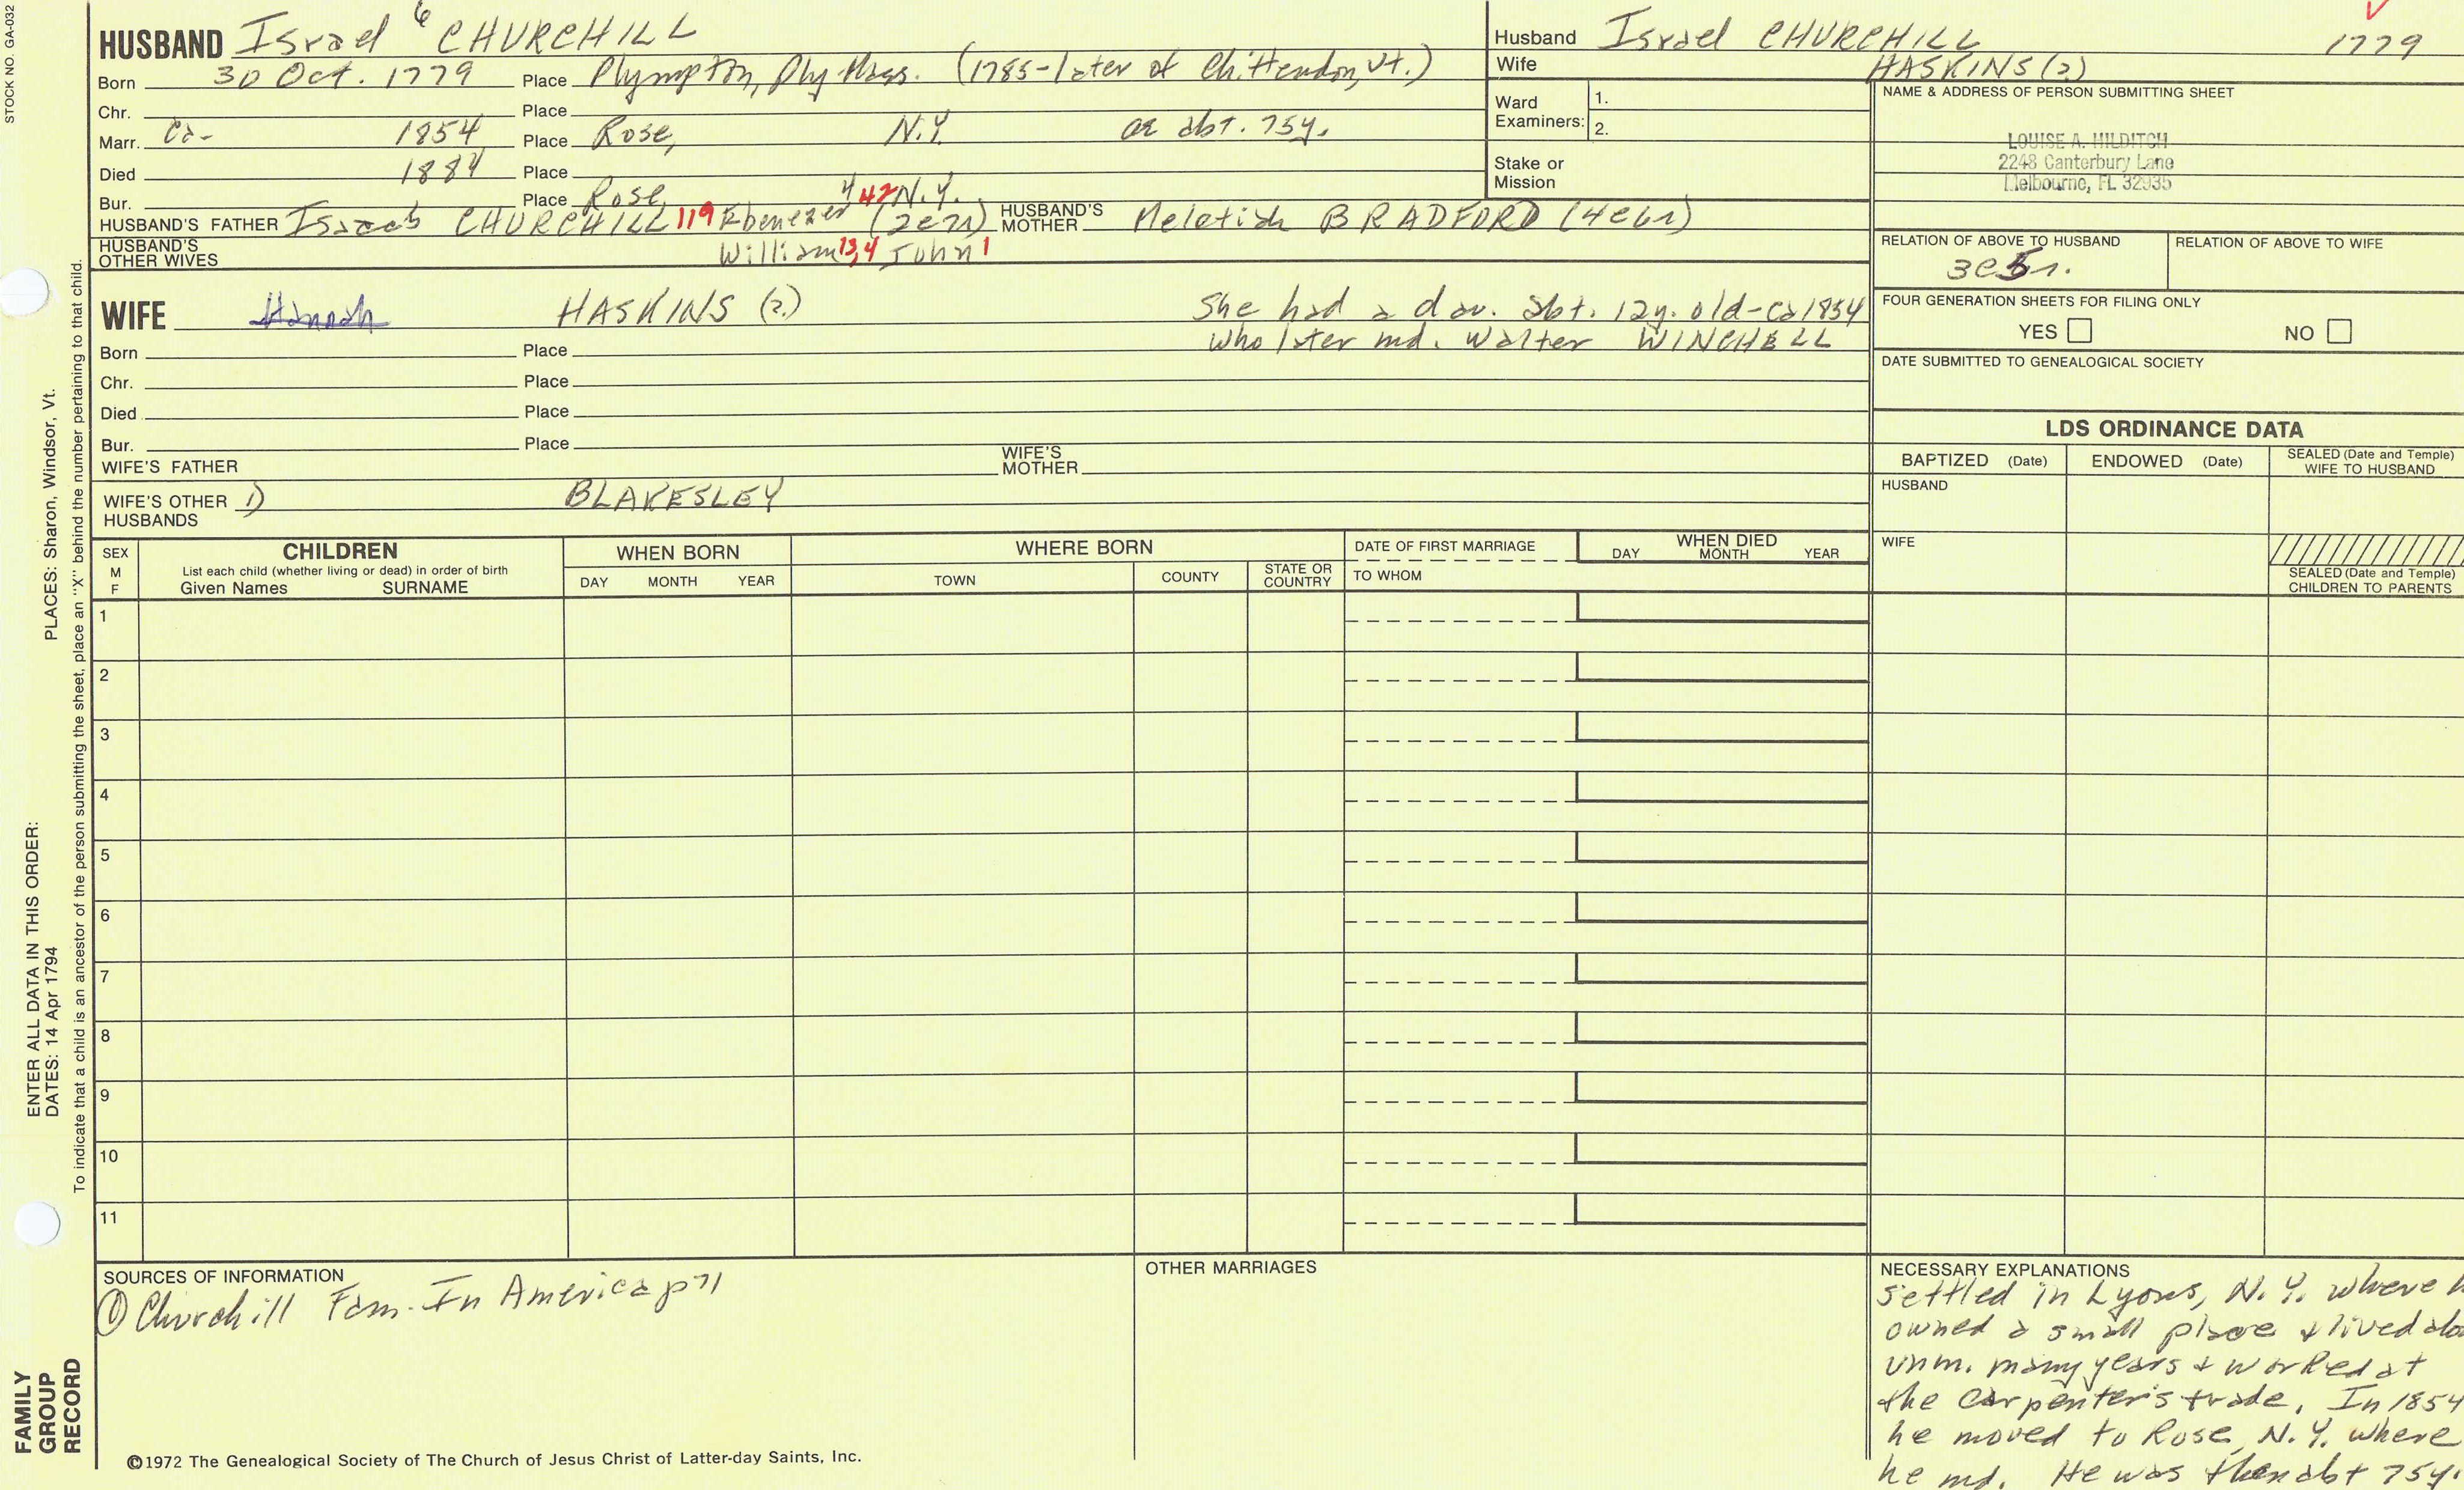 STOCK NO. GA-032
HUSBAND Israel 6 CHURCHILL
Born 30 Oct. 1779 Place Plympton, Ply Mass. (1785-later of Chittendon, Vt.)
Chr. Place
Marr. Ca- 1854 Place Rose, N.Y. at abt. 75y.
Died 1884 Place
Bur. Place Rose, N.Y.
HUSBAND'S FATHER CHURCHILL 119 Ebenezer 4 42 (2c7r) HUSBAND'S MOTHER Meletiah BRADFORD (4c6r)
HUSBAND'S OTHER WIVES William 13,4 John 1
Husband Israel CHURCHILL 1779
Wife HASKINS (?)
Ward Examiners: 1.
2.
Stake or Mission
NAME & ADDRESS OF PERSON SUBMITTING SHEET
LOUISE A. HILDITCH
2248 Canterbury Lane
Melbourne, FL 32935
RELATION OF ABOVE TO HUSBAND RELATION OF ABOVE TO WIFE
3c5r.
FOUR GENERATION SHEETS FOR FILING ONLY
YES NO
DATE SUBMITTED TO GENEALOGICAL SOCIETY
WIFE Hannah HASKINS (?) She had a dau. abt. 12y. old-ca 1854
who later md. Walter WINCHELL
Born Place
Chr. Place
Died Place
Bur. Place
WIFE'S FATHER WIFE'S MOTHER
WIFE'S OTHER HUSBANDS 1) BLAKESLEY
LDS ORDINANCE DATA
BAPTIZED (Date) ENDOWED (Date) SEALED (Date and Temple) WIFE TO HUSBAND
HUSBAND
WIFE
SEALED (Date and Temple) CHILDREN TO PARENTS
SEX M F
CHILDREN
List each child (whether living or dead) in order of birth
Given Names SURNAME
WHEN BORN
DAY MONTH YEAR
WHERE BORN
TOWN COUNTY STATE OR COUNTRY
DATE OF FIRST MARRIAGE
TO WHOM
WHEN DIED
DAY MONTH YEAR
1
2
3
4
5
6
7
8
9
10
11
SOURCES OF INFORMATION
① Churchill Fam. In America p71
OTHER MARRIAGES
NECESSARY EXPLANATIONS
settled in Lyons, N.Y. where h
owned a small place & lived alo
unm. many years & worked at
the carpenter's trade. In 1854
he moved to Rose, N.Y. where
he md. He was then abt 75y.
©1972 The Genealogical Society of The Church of Jesus Christ of Latter-day Saints, Inc.
FAMILY GROUP RECORD
ENTER ALL DATA IN THIS ORDER:
DATES: 14 Apr 1794 PLACES: Sharon, Windsor, Vt.
To indicate that a child is an ancestor of the person submitting the sheet, place an "X" behind the number pertaining to that child.